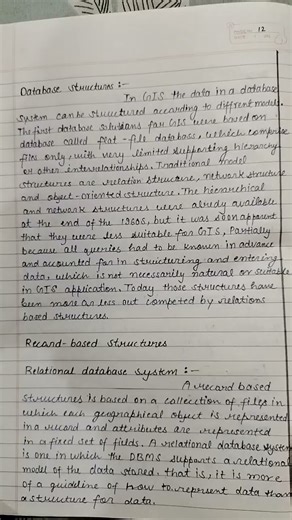 12
Database structures :-
In GIS the data in a database
system can be structured according to diffrent models.
The first database solutions for GIS were based on
database called flat-file database, which comprise
files only, with very limited supporting hierarchy
or other interrelationships. Traditional model
structures are relation structure, network structure
and object-oriented structure. The hierarchical
and network structures were alredy available
at the end of the 1960s, but it was soon apparent
that they were less suitable for GIS, Partially
because all queries had to be known in advance
and accounted for in structuring and entering
data, which is not necessarily natural or suitable
in GIS application. Today those structures have
been more or less out competed by relations
based structures.
Record-based structures
Relational database system :-
A record based
structures is based on a collection of files in
which each geographical object is represented
in a record and attributes are represented
in a fixed set of fields. A relational database system
is one in which the DBMS supports a relational
model of the data stored. that is, it is more
of a guideline of how to represent data than
a structure for data.